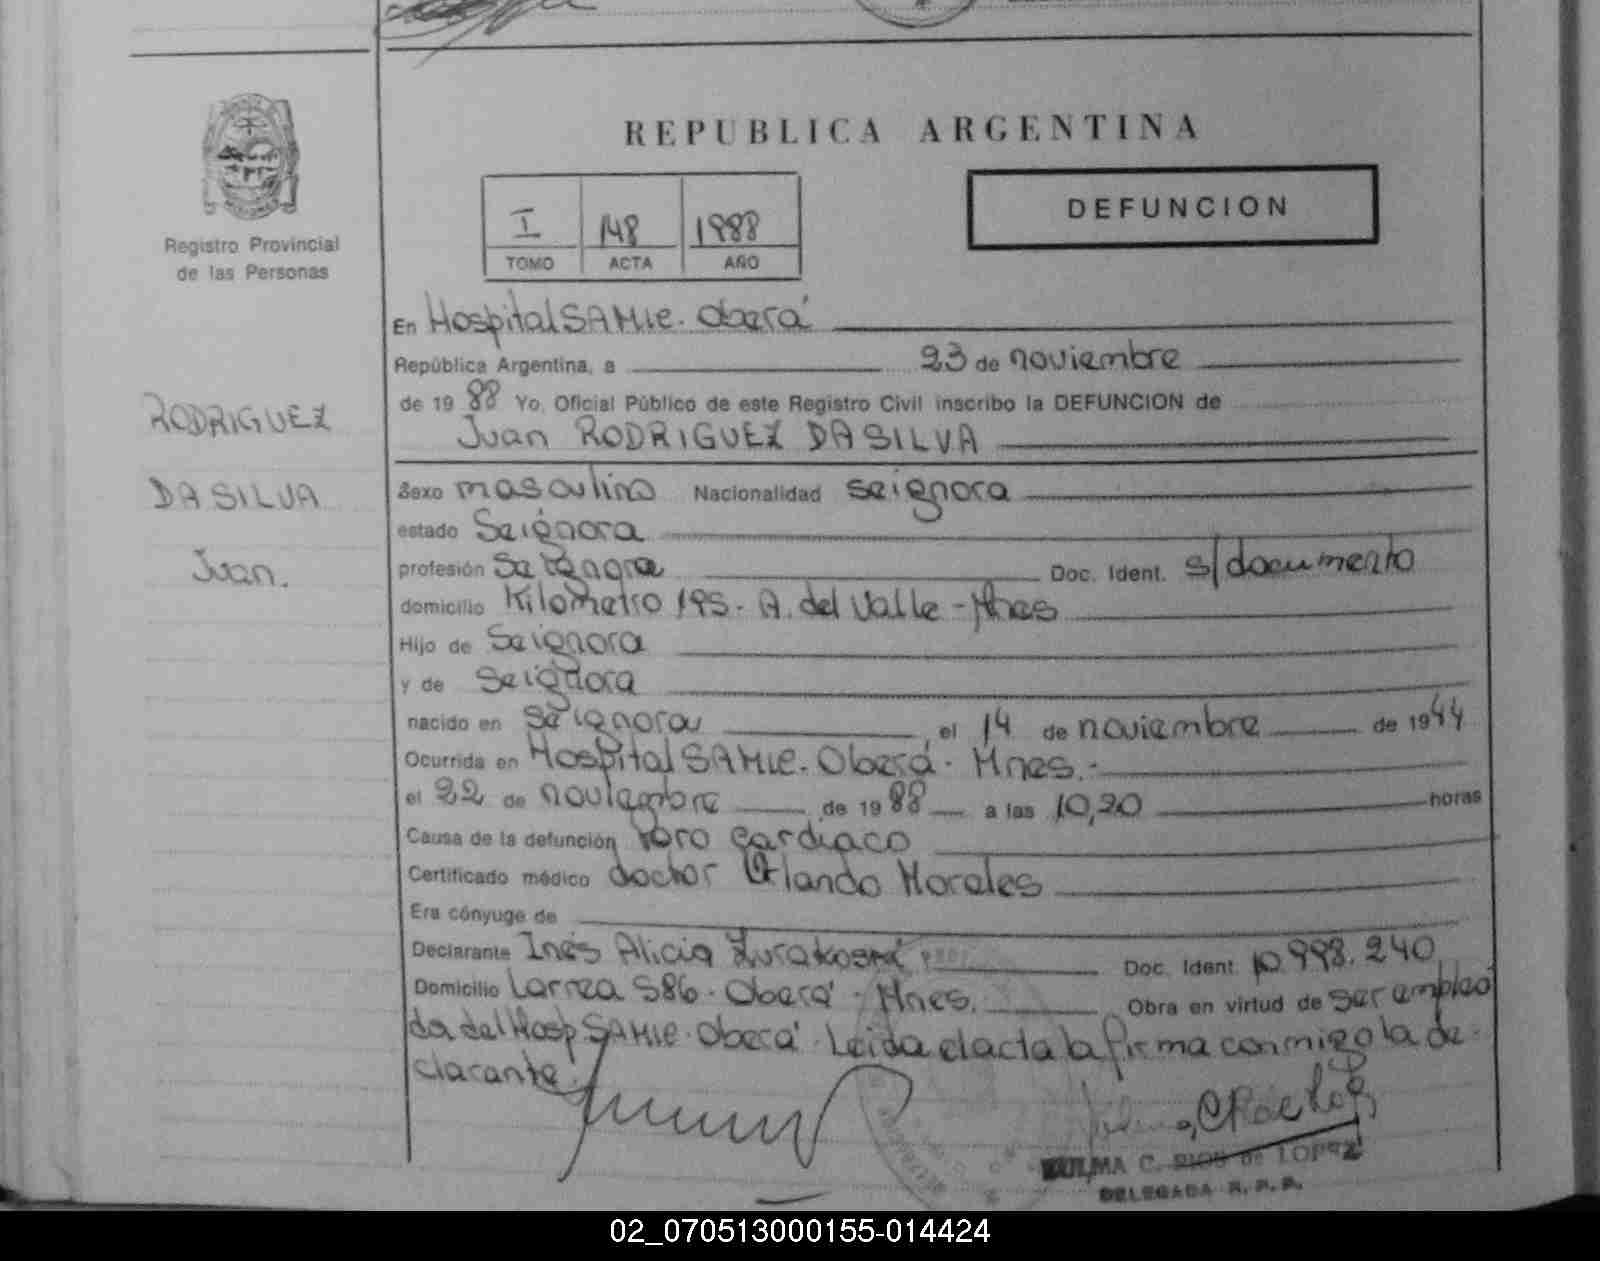 REPUBLICA ARGENTINA
I 148 1988
TOMO ACTA AÑO
DEFUNCION
Registro Provincial
de las Personas
RODRIGUEZ
DA SILVA
Juan.
En Hospital SAMIc. Oberá
República Argentina, a 23 de noviembre
de 1988 Yo, Oficial Público de este Registro Civil inscribo la DEFUNCION de
Juan RODRIGUEZ DA SILVA
Sexo masculino Nacionalidad seignora
estado Seignora
profesión Se ignora Doc. Ident. s/documento
domicilio Kilometro 195. A. del Valle - Mnes
Hijo de Seignora
y de Seignora
nacido en Se ignora el 14 de noviembre de 1944
Ocurrida en Hospital SAMIc. Oberá. Mnes.-
el 22 de noviembre de 1988 a las 10,20 horas
Causa de la defunción Paro cardiaco
Certificado médico doctor Orlando Morales
Era cónyuge de
Declarante Inés Alicia Doc. Ident. 10.998.240
Domicilio Larrea 586. Oberá. Mnes. Obra en virtud de ser emplea
da del Hosp SAMIc. Oberá. Leida el acta la firma conmigo la de-
clarante.
C. RIOS de LOPEZ
DELEGADA R. P. P.
02_070513000155-014424